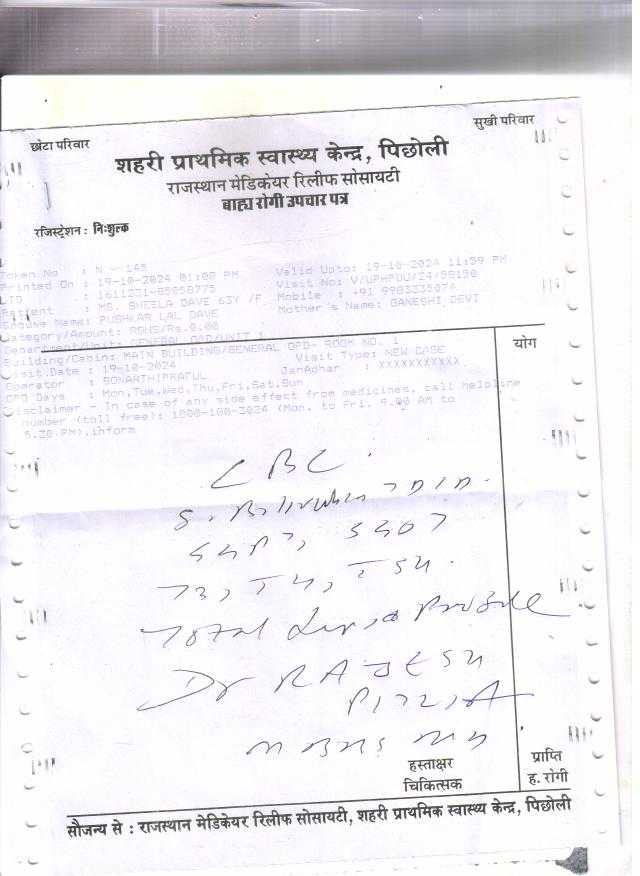 छोटा परिवार
सुखी परिवार
शहरी प्राथमिक स्वास्थ्य केन्द्र, पिछोली
राजस्थान मेडिकेयर रिलीफ सोसायटी
बाह्य रोगी उपचार पत्र
रजिस्ट्रेशन : निःशुल्क
Token No : N - 145
Printed On : 19-10-2024 01:08 PM Valid Upto: 19-10-2024 11:59 PM
: 1611231-85058775 Visit No: V/UPHPDU/24/58150
Patient : MS. SHEELA DAVE 63Y /F Mobile : +91 9983335074
Spouse Name: PUSHKAR LAL DAVE Mother's Name: GANESHI DEVI
Category/Amount: RGHS/Rs.0.00
Department/Unit: GENERAL OPD/UNIT 1
Building/Cabin: MAIN BUILDING/GENERAL OPD- ROOM NO. 1
Visit.Date : 19-10-2024 Visit Type: NEW CASE
Operator : SONARTHIPRAFUL JanAdhar : XXXXXXXXXXX
OPD Days : Mon,Tue,Wed,Thu,Fri,Sat,Sun
Disclaimer - In case of any side effect from medicines, call helpline
number (toll free): 1800-180-3024 (Mon. to Fri. 9.00 AM to
5.30.PM),inform
योग
CBC
S. Bilirubin T D ID
SGPT, SGOT
T3, T4, TSH
Total Profile
Dr RAJESH
हस्ताक्षर
चिकित्सक
प्राप्ति
ह. रोगी
सौजन्य से : राजस्थान मेडिकेयर रिलीफ सोसायटी, शहरी प्राथमिक स्वास्थ्य केन्द्र, पिछोली